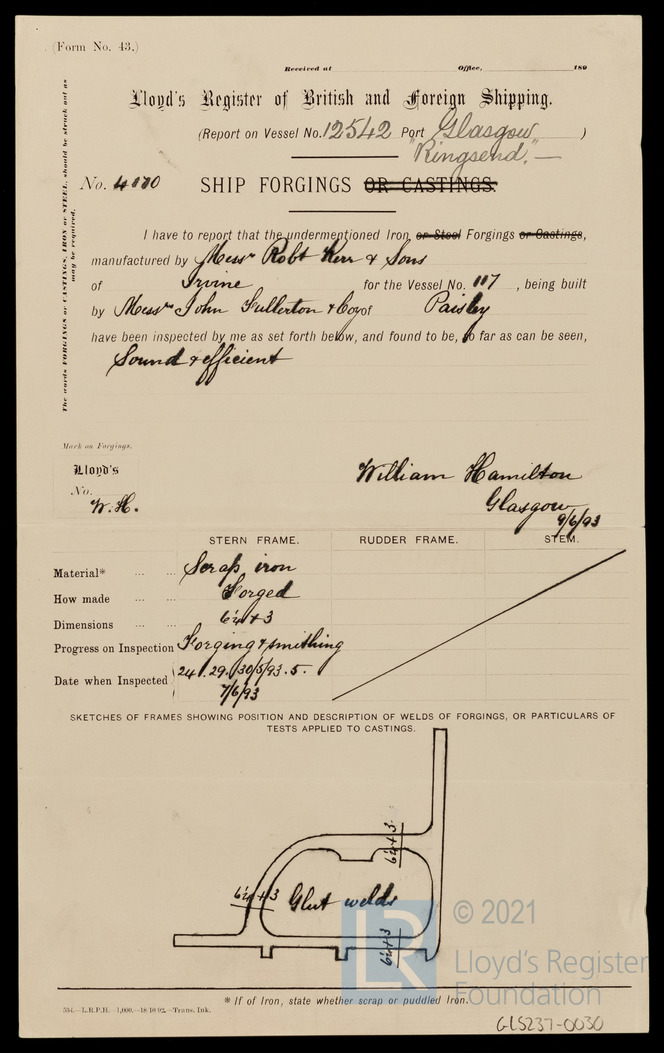 (Form No. 43.)
Received at Office, 189
Lloyd's Register of British and Foreign Shipping.
(Report on Vessel No. 12542 Port Glasgow )
"Ringsend." —
No. 4170 SHIP FORGINGS OR CASTINGS.
The words FORGINGS or CASTINGS, IRON or STEEL, should be struck out as
may be required.
I have to report that the undermentioned Iron or Steel Forgings or Castings,
manufactured by Messrs Robt Kerr & Sons
of Irvine for the Vessel No. 117 , being built
by Messrs John Fullerton & Coy of Paisley
have been inspected by me as set forth below, and found to be, so far as can be seen,
Sound & efficient
Mark on Forgings.
Lloyd's
No.
W.H.
William Hamilton
Glasgow
9/6/93
STERN FRAME. RUDDER FRAME. STEM.
Material* ... ... Scrap iron
How made ... ... Forged
Dimensions ... ...
Progress on Inspection Forging & smithing
Date when Inspected 24. 29. 30/5/93. 5.
7/6/93
SKETCHES OF FRAMES SHOWING POSITION AND DESCRIPTION OF WELDS OF FORGINGS, OR PARTICULARS OF
TESTS APPLIED TO CASTINGS.
Glut welds
LR
© 2021
Lloyd's Register
Foundation
* If of Iron, state whether scrap or puddled Iron.
534.—L.R.P.H.—1,000.—18/10/92.—Trans. Ink.
GLS237-0030